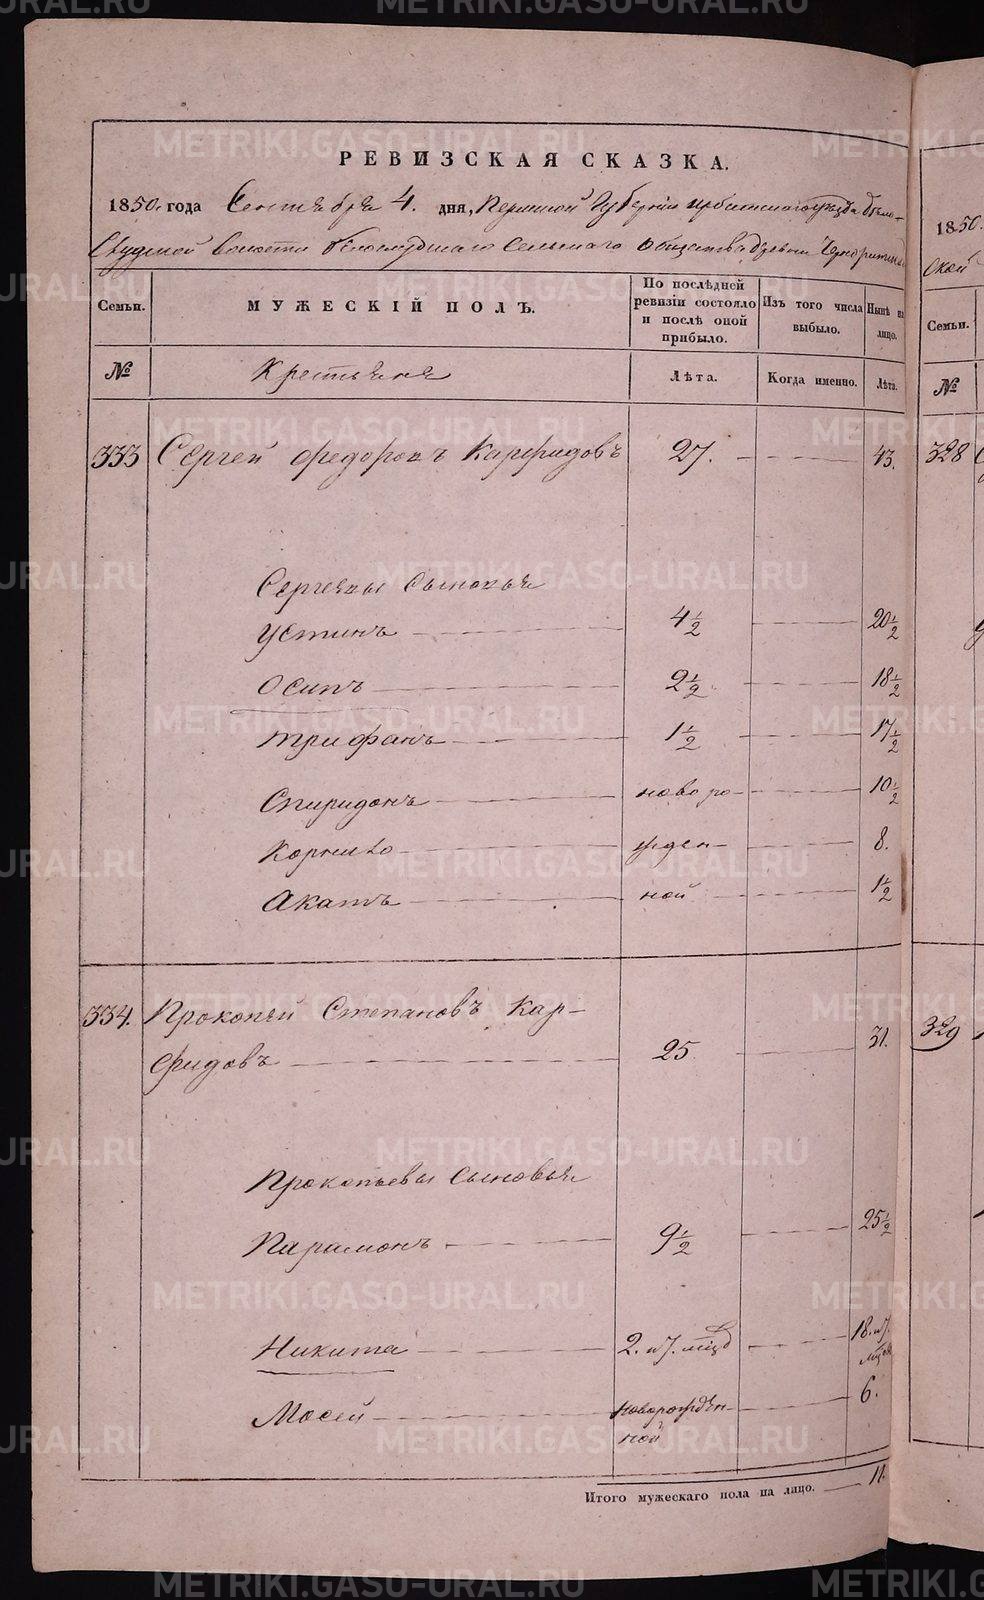 РЕВИЗСКАЯ СКАЗКА.
1850. года Сентября 4. дня, Пермской Губернии Ирбитского уезда Бело-
слудской волости Белослудского Сельского общества деревни
Семьи.
МУЖЕСКІЙ ПОЛЪ.
По послѣдней ревизіи состояло и послѣ оной прибыло.
Изъ того числа выбыло.
Нынѣ на лицо.
№
Крестьяня
Лѣта.
Когда именно.
Лѣта.
333 Сергей Федоровъ Карфидовъ 27. 43.
Сергеевы сыновья
Устинъ 4½ 20½
Осипъ 2½ 18½
Трифанъ 1½ 17½
Спиридонъ новоро- 10½
Корнило жден- 8.
Акатъ ной 1½
334. Прокопей Степановъ Кар-
фидовъ 25 31.
Прокопьевы сыновья
Парамонъ 9½ 25½
Никита 2. и 7. мцъ 18. и 7.
Мосей новорожден- 6.
ной
Итого мужескаго пола на лицо. 11.
1850.
ской
Семьи.
№
328
329
METRIKI.GASO-URAL.RU